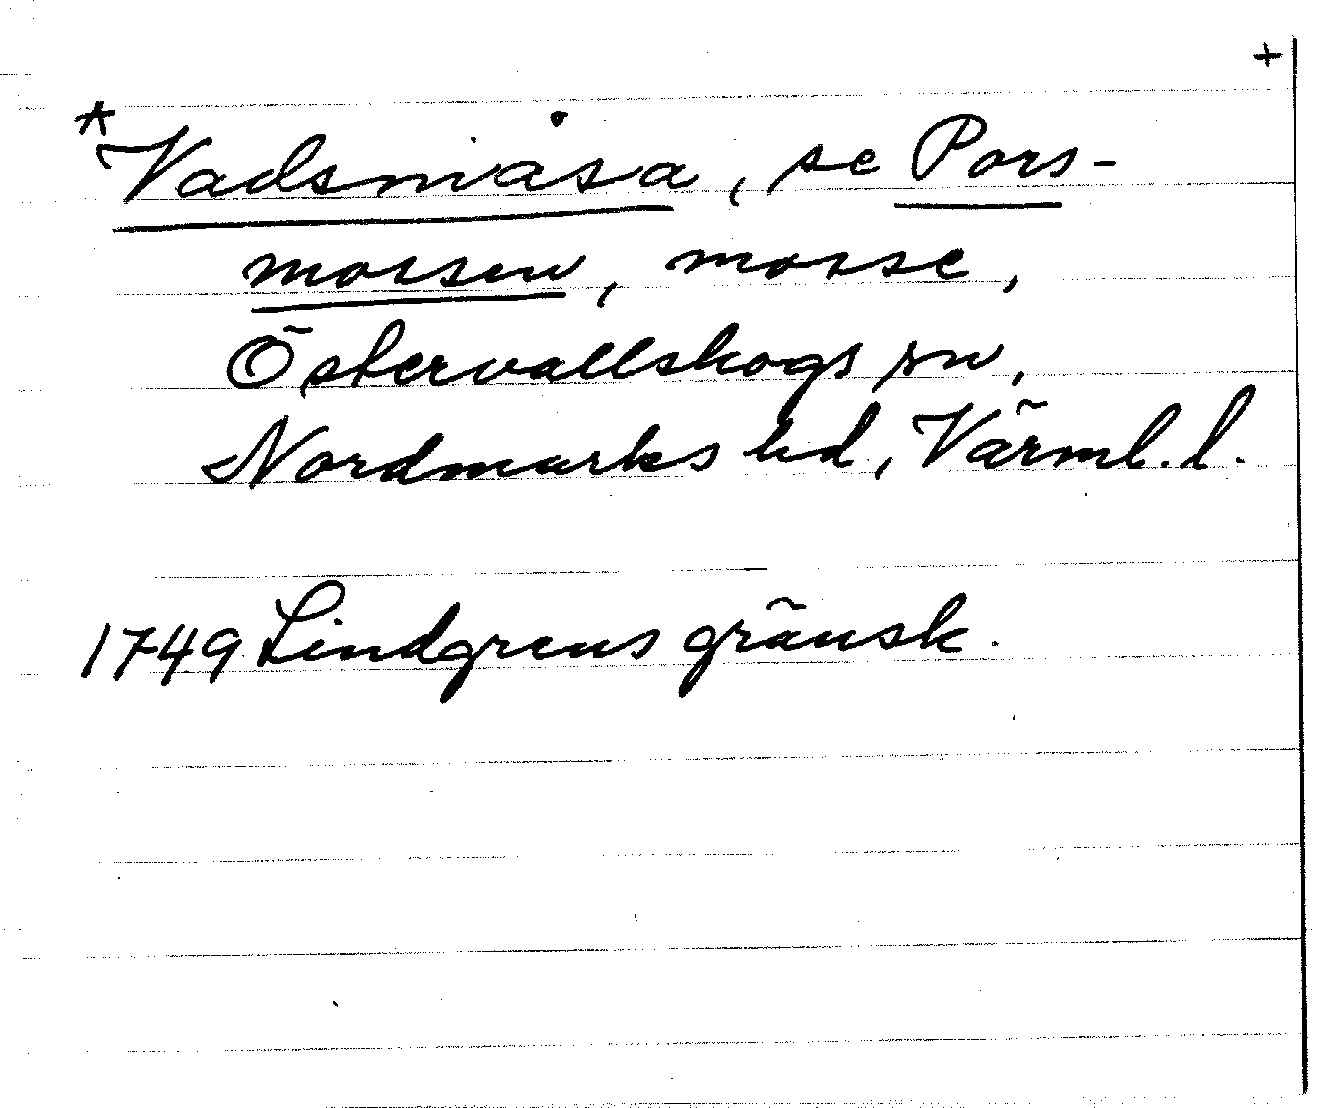 +
*Vadsmåsa, se Pors-
mossen, mosse,
Östervallskogs sn,
Nordmarks hd, Värml. l.
1749 Lindgrens gränsk.